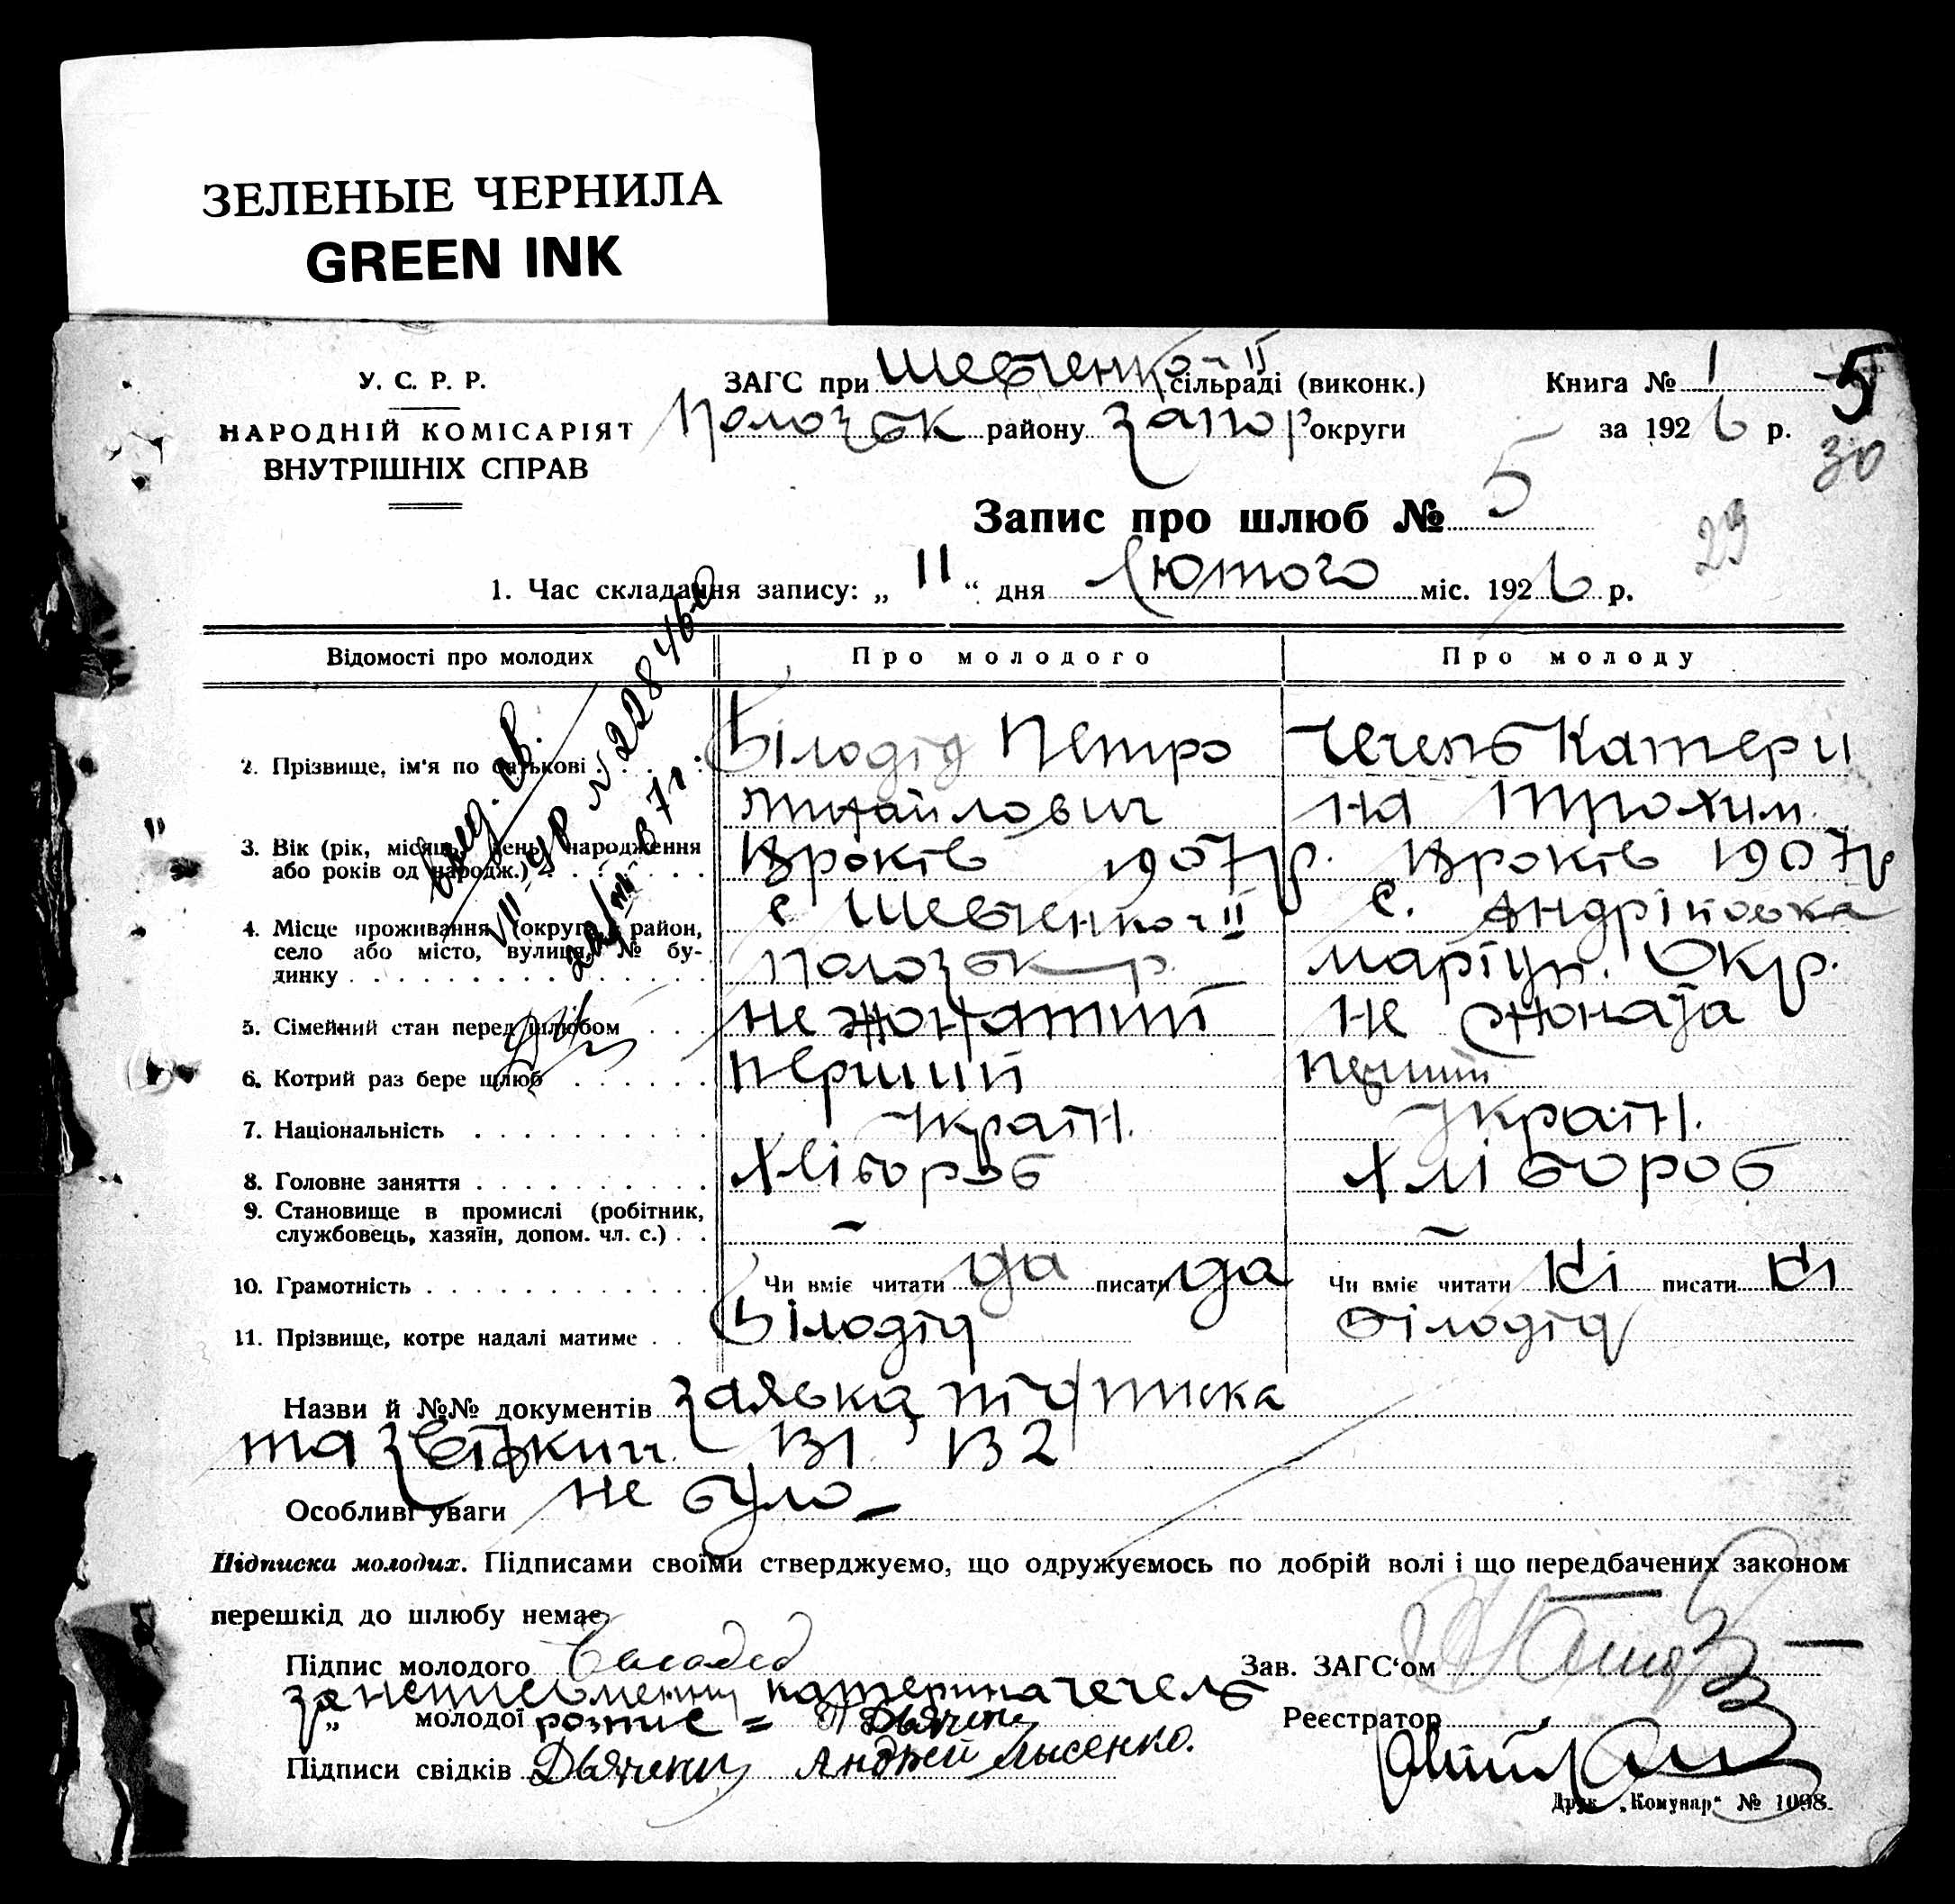 ЗЕЛЕНЫЕ ЧЕРНИЛА
GREEN INK
У. С. Р. Р.
НАРОДНІЙ КОМІСАРІЯТ
ВНУТРІШНІХ СПРАВ
ЗАГС при Шевченко II сільраді (виконк.)
Пологівськ району Запор округи
Книга № 1
за 1926 р.
5
30
29
Запис про шлюб № 5
1. Час складання запису: „ 11 “ дня Лютого міс. 1926 р.
Відомості про молодих Про молодого Про молоду
2. Прізвище, ім'я по батькові Білодід Петро Михайлович
Чечель Катерина Трохим.
3. Вік (рік, місяць, день народження
або років од народж.) 18 років 1907 р. 18 років 1907 р
4. Місце проживання (округа, район,
село або місто, вулиця, № будинку
с Шевченко II
с. Андріївка
маріуп. Окр.
5. Сімейний стан перед шлюбом не жонатий
6. Котрий раз бере шлюб перший перший
7. Національність Україн. Україн.
8. Головне заняття Хлібороб Хлібороб
9. Становище в промислі (робітник,
службовець, хазяїн, допом. чл. с.) – –
10. Грамотність Чи вміє читати да писати да Чи вміє читати ні писати ні
11. Прізвище, котре надалі матиме Білодід Білодід
Назви й №№ документів заявка підписка
та
Особливі уваги не було –
Підписка молодих. Підписами своїми стверджуємо, що одружуємось по добрій волі і що передбачених законом
перешкід до шлюбу немає.
Підпис молодого Зав. ЗАГС'ом
за неписьменну Катерина Чечель
„ молодої розпис = Реєстратор
Підписи свідків Андрей Лысенко.
Друк. „Комунар“ № 1098.